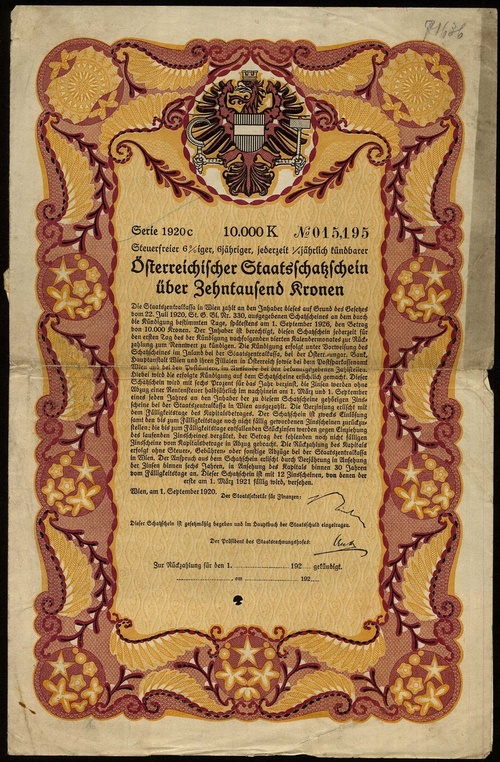 Serie 1920c 10.000 K № 015,195
Steuerfreier 6%iger, 6jähriger, jederzeit ¼jährlich kündbarer
Österreichischer Staatsschatzschein
über Zehntausend Kronen
Die Staatszentralkassa in Wien zahlt an den Inhaber dieses auf Grund des Gesetzes
vom 22. Juli 1920, St. G. Bl. Nr. 330, ausgegebenen Schatzscheines an dem durch
die Kündigung bestimmten Tage, spätestens am 1. September 1926, den Betrag
von 10.000 Kronen. Der Inhaber ist berechtigt, diesen Schatzschein jederzeit für
den ersten Tag des der Kündigung nachfolgenden vierten Kalendermonates zur Rück-
zahlung zum Nennwert zu kündigen. Die Kündigung erfolgt unter Vorweisung des
Schatzscheines im Inland bei der Staatszentralkassa, bei der Österr.-ungar. Bank,
Hauptanstalt Wien und ihren Filialen in Österreich sowie bei dem Postsparkassenamt
Wien und bei den Postämtern, im Auslande bei den bekanntgegebenen Zahlstellen.
Hiebei wird die erfolgte Kündigung auf dem Schatzscheine ersichtlich gemacht. Dieser
Schatzschein wird mit sechs Prozent für das Jahr verzinst, die Zinsen werden ohne
Abzug einer Rentensteuer halbjährlich im nachhinein am 1. März und 1. September
eines jeden Jahres an den Inhaber der zu diesem Schatzscheine gehörigen Zins-
scheine bei der Staatszentralkassa in Wien ausgezahlt. Die Verzinsung erlischt mit
dem Fälligkeitstage des Kapitalsbetrages. Der Schatzschein ist zwecks Einlösung
samt den bis zum Fälligkeitstage noch nicht fällig gewordenen Zinsscheinen zurückzu-
stellen; die bis zum Fälligkeitstage entfallenden Stückzinsen werden gegen Einziehung
des laufenden Zinsscheines vergütet, der Betrag der fehlenden noch nicht fälligen
Zinsscheine vom Kapitalsbetrage in Abzug gebracht. Die Rückzahlung des Kapitals
erfolgt ohne Steuer-, Gebühren- oder sonstige Abzüge bei der Staatszentralkassa
in Wien. Der Anspruch aus dem Schatzschein erlischt durch Verjährung in Ansehung
der Zinsen binnen sechs Jahren, in Ansehung des Kapitals binnen 30 Jahren
vom Fälligkeitstage an. Dieser Schatzschein ist mit 12 Zinsscheinen, von denen der
erste am 1. März 1921 fällig wird, versehen.
Wien, am 1. September 1920.
Der Staatssekretär für Finanzen:
Dieser Schatzschein ist gesetzmäßig begeben und im Hauptbuch der Staatsschuld eingetragen.
Der Präsident des Staatsrechnungshofes:
Zur Rückzahlung für den 1. 192 gekündigt.
am 192